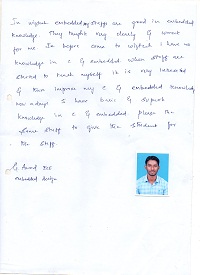 In wistech embedded staffs are good in embedded
knowledge. They taught very clearly & want
for me. In before come to wistech i have no
knowledge in C & embedded. when staffs are
started to teach myself it is very interested
& then improve my C & embedded knowledge
now a days I have basic & superb
knowledge in C & embedded. please the
same staff to give the student for
the staff.
embedded design